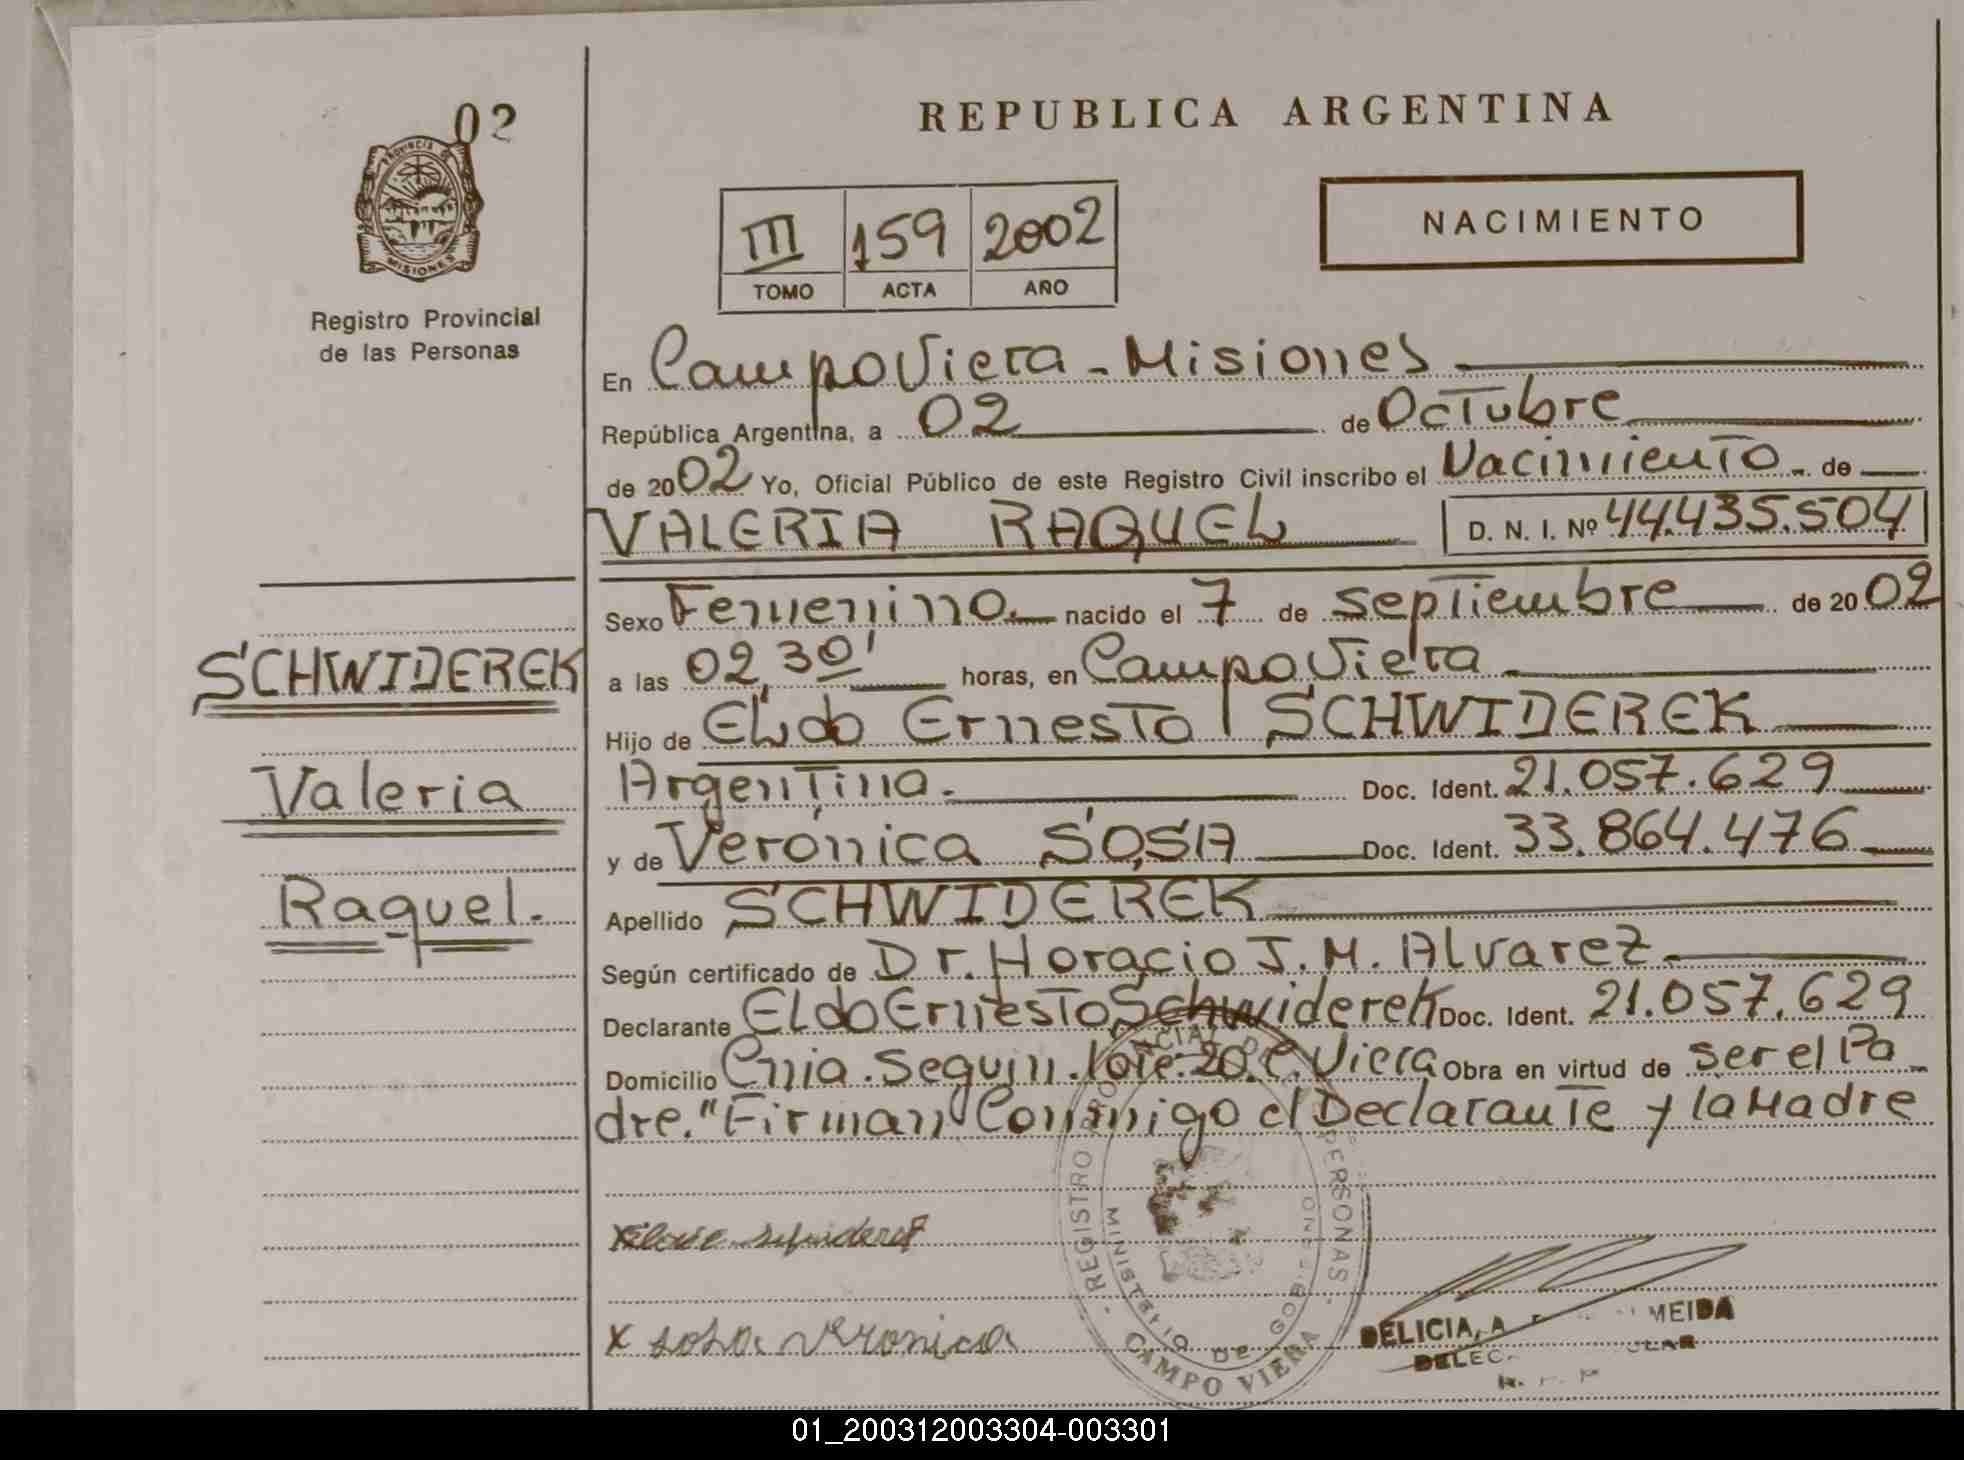 02
PROVINCIA DE
MISIONES
Registro Provincial
de las Personas
SCHWIDEREK
Valeria
Raquel.
REPUBLICA ARGENTINA
III 159 2002
TOMO ACTA AÑO
NACIMIENTO
En Campo Viera - Misiones
República Argentina, a 02 de Octubre
de 2002 Yo, Oficial Público de este Registro Civil inscribo el Nacimiento de
VALERIA RAQUEL D. N. I. Nº 44.435.504
Sexo Femenino. nacido el 7 de septiembre de 2002
a las 02,30' horas, en Campo Viera
Hijo de ELdo Ernesto SCHWIDEREK
Argentina. Doc. Ident. 21.057.629
y de Verónica SOSA Doc. Ident. 33.864.476
Apellido SCHWIDEREK
Según certificado de Dr. Horacio J. M. Alvarez
Declarante ELdo Ernesto Schwiderek Doc. Ident. 21.057.629
Domicilio Cnia. Seguin. lote. 20. C. Viera Obra en virtud de ser el Pa
dre. "Firman Conmigo el Declarante y la Madre
REGISTRO PROVINCIAL DE PERSONAS
MINISTERIO DE GOBIERNO
CAMPO VIERA
x sosa veronica
DELICIA, A MEIDA
01_200312003304-003301